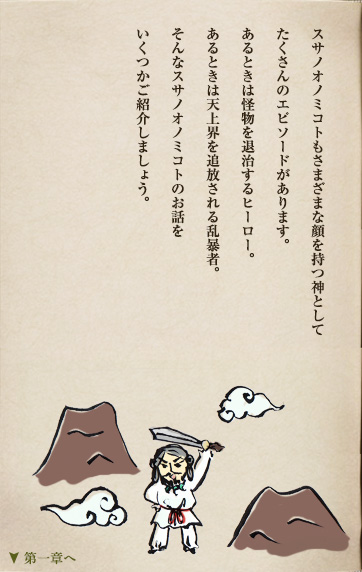 スサノオノミコトもさまざまな顔を持つ神として
たくさんのエピソードがあります。
あるときは怪物を退治するヒーロー。
あるときは天上界を追放される乱暴者。
そんなスサノオノミコトのお話を
いくつかご紹介しましょう。
▼ 第一章へ